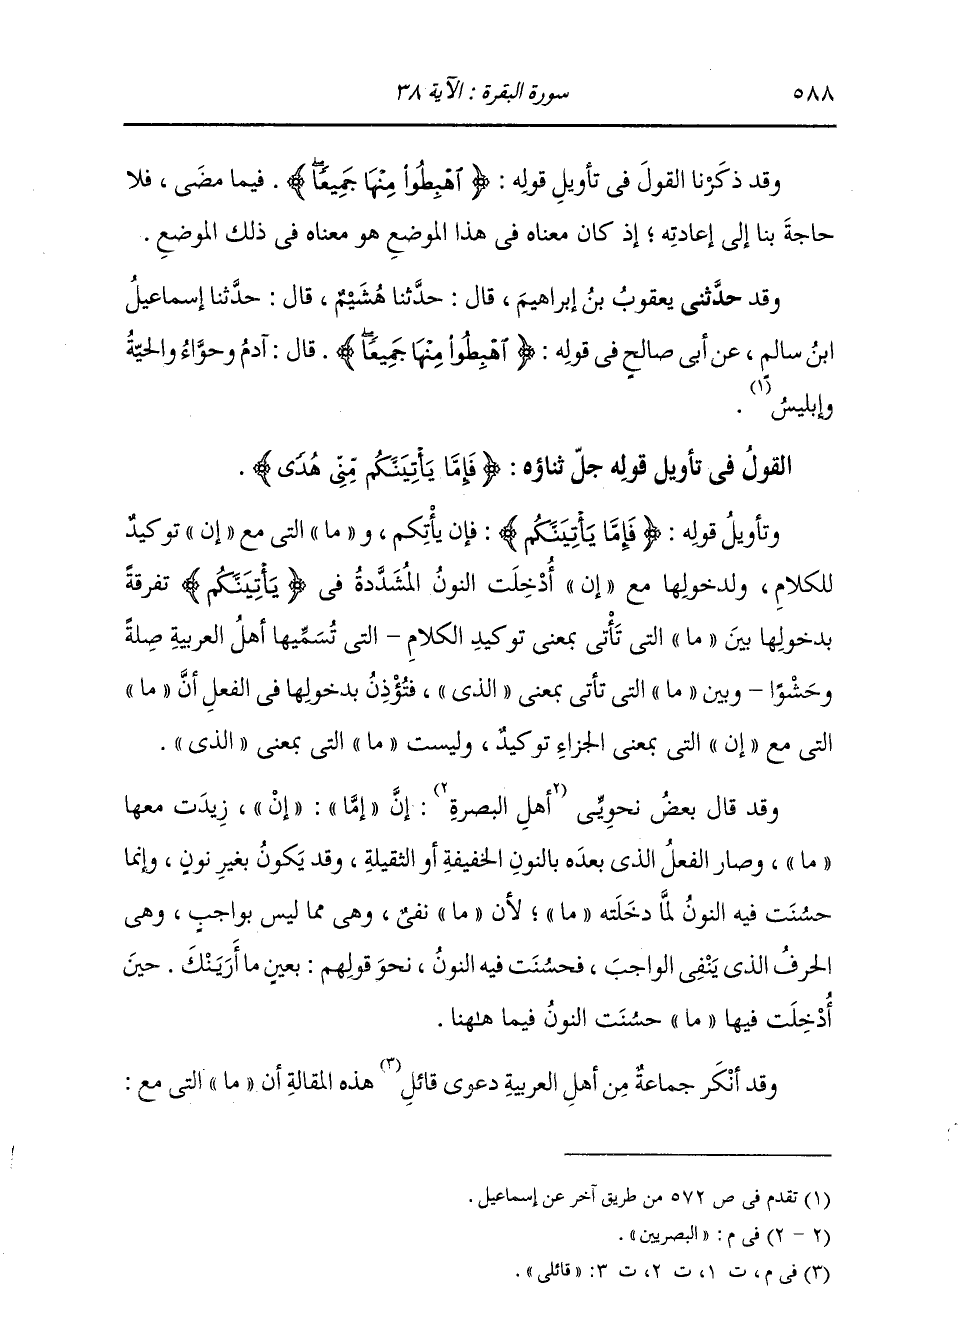 ٥٨٨ سورة البقرة : الآية ٣٨
وقد ذكَرْنا القولَ فى تأويلِ قولِه : ﴿ ٱهْبِطُوا۟ مِنْهَا جَمِيعًاۖ ﴾ . فيما مضَى ، فلا
حاجةَ بنا إلى إعادتِه ؛ إذ كان معناه فى هذا الموضعِ هو معناه فى ذلك الموضعِ .
وقد حدَّثنى يعقوبُ بنُ إبراهيمَ ، قال : حدَّثنا هُشَيْمٌ ، قال : حدَّثنا إسماعيلُ
ابنُ سالمٍ ، عن أبى صالحٍ فى قولِه : ﴿ ٱهْبِطُوا۟ مِنْهَا جَمِيعًاۖ ﴾ . قال : آدمُ وحوَّاءُ والحيّةُ
وإبليسُ(١) .
القولُ فى تأويلِ قولِه جلّ ثناؤه : ﴿ فَإِمَّا يَأْتِيَنَّكُم مِّنِّى هُدًى ﴾ .
وتأويلُ قولِه : ﴿ فَإِمَّا يَأْتِيَنَّكُم ﴾ : فإن يأْتِكم ، و « ما » التى مع « إن » توكيدٌ
للكلامِ ، ولدخولِها مع « إن » أُدْخِلَت النونُ المُشَدَّدةُ فى ﴿ يَأْتِيَنَّكُم ﴾ تفرقةً
بدخولِها بينَ « ما » التى تَأْتى بمعنى توكيدِ الكلامِ – التى تُسَمِّيها أهلُ العربيةِ صِلةً
وحَشْوًا – وبين « ما » التى تأتى بمعنى « الذى » ، فتُؤْذِنُ بدخولِها فى الفعلِ أنَّ « ما »
التى مع « إن » التى بمعنى الجزاءِ توكيدٌ ، وليست « ما » التى بمعنى « الذى » .
وقد قال بعضُ نحويِّى (٢أهلِ البصرةِ٢) : إنَّ « إمَّا » : « إنْ » ، زِيدَت معها
« ما » ، وصار الفعلُ الذى بعدَه بالنونِ الخفيفةِ أو الثقيلةِ ، وقد يَكونُ بغيرِ نونٍ ، وإنما
حسُنَت فيه النونُ لمَّا دخَلَته « ما » ؛ لأن « ما » نفىٌ ، وهى مما ليس بواجبٍ ، وهى
الحرفُ الذى يَنْفِى الواجبَ ، فحسُنَت فيه النونُ ، نحوَ قولِهم : بعينٍ ما أَرَيَنْكَ . حينَ
أُدْخِلَت فيها « ما » حسُنَت النونُ فيما هٰهنا .
وقد أنْكَر جماعةٌ مِن أهلِ العربيةِ دعوى قائلِ(٣) هذه المقالةِ أن « ما » التى مع :
(١) تقدم فى ص ٥٧٢ من طريق آخر عن إسماعيل .
(٢ – ٢) فى م : « البصريين » .
(٣) فى م ، ت ١، ت ٢، ت ٣: « قائلى » .